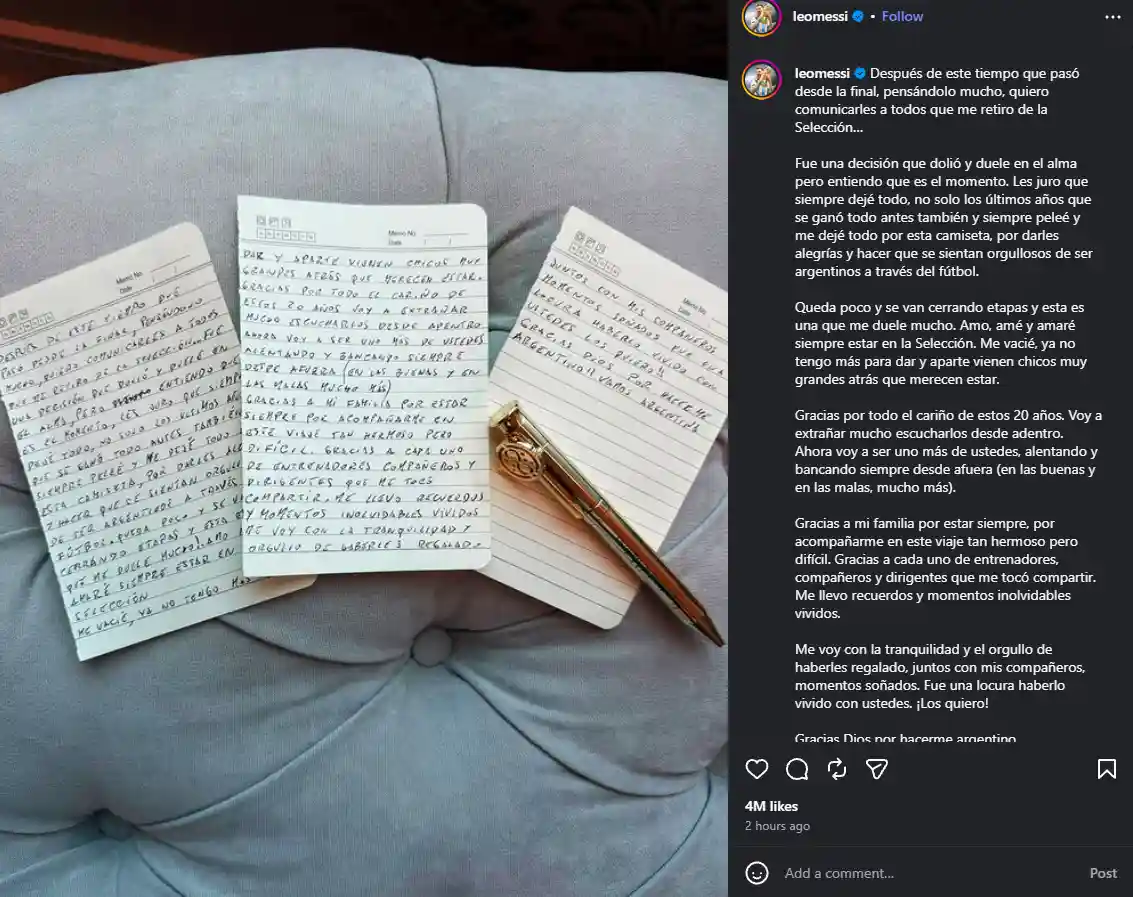 Memo No.
Date
DESPUES DE ESTE TIEMPO QUE
PASO DESDE LA FINAL, PENSANDOLO
MUCHO, QUIERO COMUNICARLES A TODOS
QUE ME RETIRO DE LA SELECCIÓN. FUE
UNA DECISIÓN QUE DOLIÓ Y DUELE EN
EL ALMA, PERO ENTIENDO QUE
ES EL MOMENTO. LES JURO QUE SIEMPRE
DEJÉ TODO, NO SOLO LOS ULTIMOS AÑOS
QUE SE GANÓ TODO ANTES TAMBIÉN
SIEMPRE PELEÉ Y ME DEJÉ TODO
ESTA CAMISETA, POR DARLES
Y HACER QUE SE SIENTAN
DE SER ARGENTINOS A TRAVÉS
FÚTBOL. QUEDA POCO Y SE
CERRANDO ETAPAS Y ESTA
QUE ME DUELE MUCHO. AMO
AMARÉ SIEMPRE ESTAR EN
SELECCIÓN
ME VACIÉ, YA NO TENGO MAS
Memo No.
Date / /
DAR Y APARTE VIENEN CHICOS MUY
GRANDES ATRÁS QUE MERECEN ESTAR.
GRACIAS POR TODO EL CARIÑO DE
ESTOS 20 AÑOS VOY A EXTRAÑAR
MUCHO ESCUCHARLOS DESDE ADENTRO
AHORA VOY A SER UNO MAS DE USTEDES
ALENTANDO Y BANCANDO SIEMPRE
DESDE AFUERA (EN LAS BUENAS Y EN
LAS MALAS MUCHO MÁS)
GRACIAS A MI FAMILIA POR ESTAR
SIEMPRE POR ACOMPAÑARME EN
ESTE VIAJE TAN HERMOSO PERO
DIFÍCIL. GRACIAS A CADA UNO
DE ENTRENADORES COMPAÑEROS Y
DIRIGENTES QUE ME TOCÓ
COMPARTIR. ME LLEVO RECUERDOS
Y MOMENTOS INOLVIDABLES VIVIDOS
ME VOY CON LA TRANQUILIDAD Y
ORGULLO DE HABERLES REGALADO
Memo No.
Date
JUNTOS CON MIS COMPAÑEROS
MOMENTOS SOÑADOS. FUE UNA
LOCURA HABERLO VIVIDO CON
USTEDES LOS QUIERO!!
GRACIAS DIOS POR HACERME
ARGENTINO!! VAMOS ARGENTINA
leomessi • Follow
leomessi Después de este tiempo que pasó
desde la final, pensándolo mucho, quiero
comunicarles a todos que me retiro de la
Selección...
Fue una decisión que dolió y duele en el alma
pero entiendo que es el momento. Les juro que
siempre dejé todo, no solo los últimos años que
se ganó todo antes también y siempre peleé y
me dejé todo por esta camiseta, por darles
alegrías y hacer que se sientan orgullosos de ser
argentinos a través del fútbol.
Queda poco y se van cerrando etapas y esta es
una que me duele mucho. Amo, amé y amaré
siempre estar en la Selección. Me vacié, ya no
tengo más para dar y aparte vienen chicos muy
grandes atrás que merecen estar.
Gracias por todo el cariño de estos 20 años. Voy a
extrañar mucho escucharlos desde adentro.
Ahora voy a ser uno más de ustedes, alentando y
bancando siempre desde afuera (en las buenas y
en las malas, mucho más).
Gracias a mi familia por estar siempre, por
acompañarme en este viaje tan hermoso pero
difícil. Gracias a cada uno de entrenadores,
compañeros y dirigentes que me tocó compartir.
Me llevo recuerdos y momentos inolvidables
vividos.
Me voy con la tranquilidad y el orgullo de
haberles regalado, juntos con mis compañeros,
momentos soñados. Fue una locura haberlo
vivido con ustedes. ¡Los quiero!
Gracias Dios por hacerme argentino
4M likes
2 hours ago
Add a comment...
Post